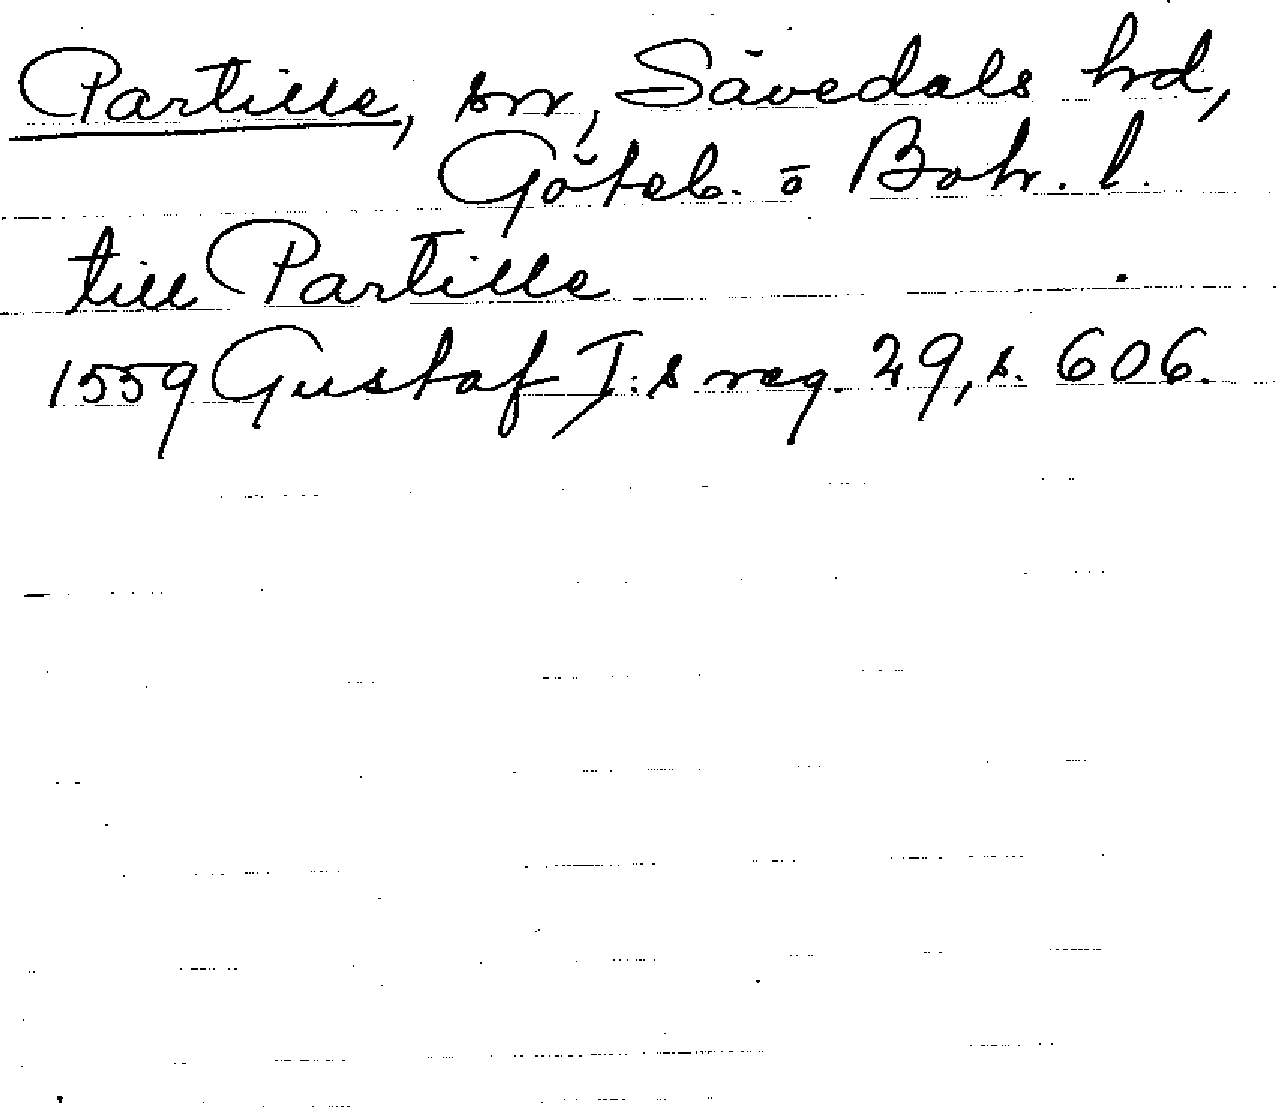 Partille, sn, Sävedals hd,
Göteb. o Boh. l.
till Partille
1559 Gustaf I:s reg. 29, s. 606.